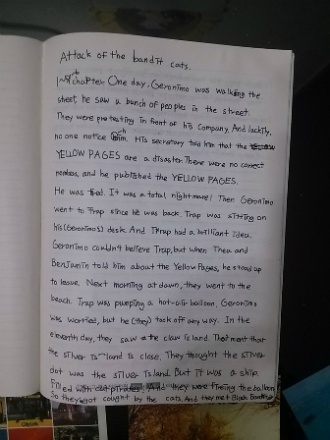 Attack of the bandit cats.
1st chapter: One day, Geronimo was walking the
street, he saw a bunch of peoples in the street.
They were protesting in front of his company. And luckily,
no one notice him. His secretary told him that the
YELLOW PAGES are a disaster. There were no correct
numbers, and he published the YELLOW PAGES.
He was fired. It was a total nightmare! Then Geronimo
went to Trap since he was back. Trap was sitting on
his (Geronimo's) desk. And Thrap had a brilliant idea.
Geronimo couldn't believe Trap, but when Thea and
Benjamin told him about the Yellow Pages, he stood up
to leave. Next morning at dawn, they went to the
beach. Trap was pumping a hot-air balloon. Geronimo
was worried, but he (they) took off any way. In the
eleventh day, they saw a claw island. That meant that
the silver island is close. They thought the silver
dot was the silver island. But it was a ship
filled with cat pirates. And they were firing the balloon
So they got cought by the cats. And they met Black